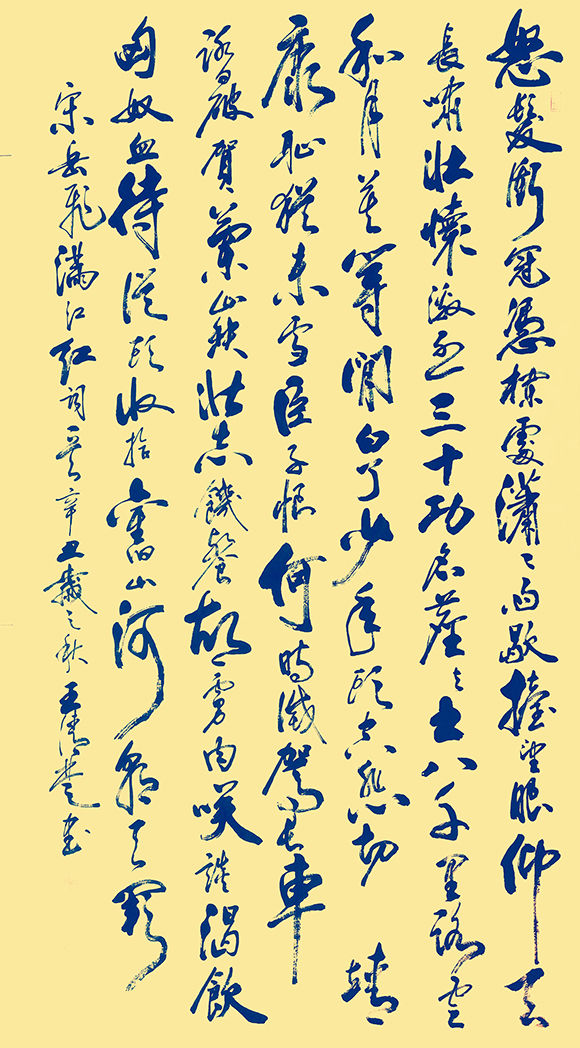 怒髮衝冠憑欄處瀟〻雨歇擡望眼仰天
長嘯壯懷激烈三十功名塵与土八千里路雲
和月莫等閒白了少年頭空悲切 靖
康恥猶未雪臣子恨何時滅駕長車
踏破賀蘭山缺壯志饑餐胡虜肉咲談渴飲
匈奴血待從頭收拾舊山河朝天闕
宋岳飛滿江紅詞一首辛丑歲之秋王書